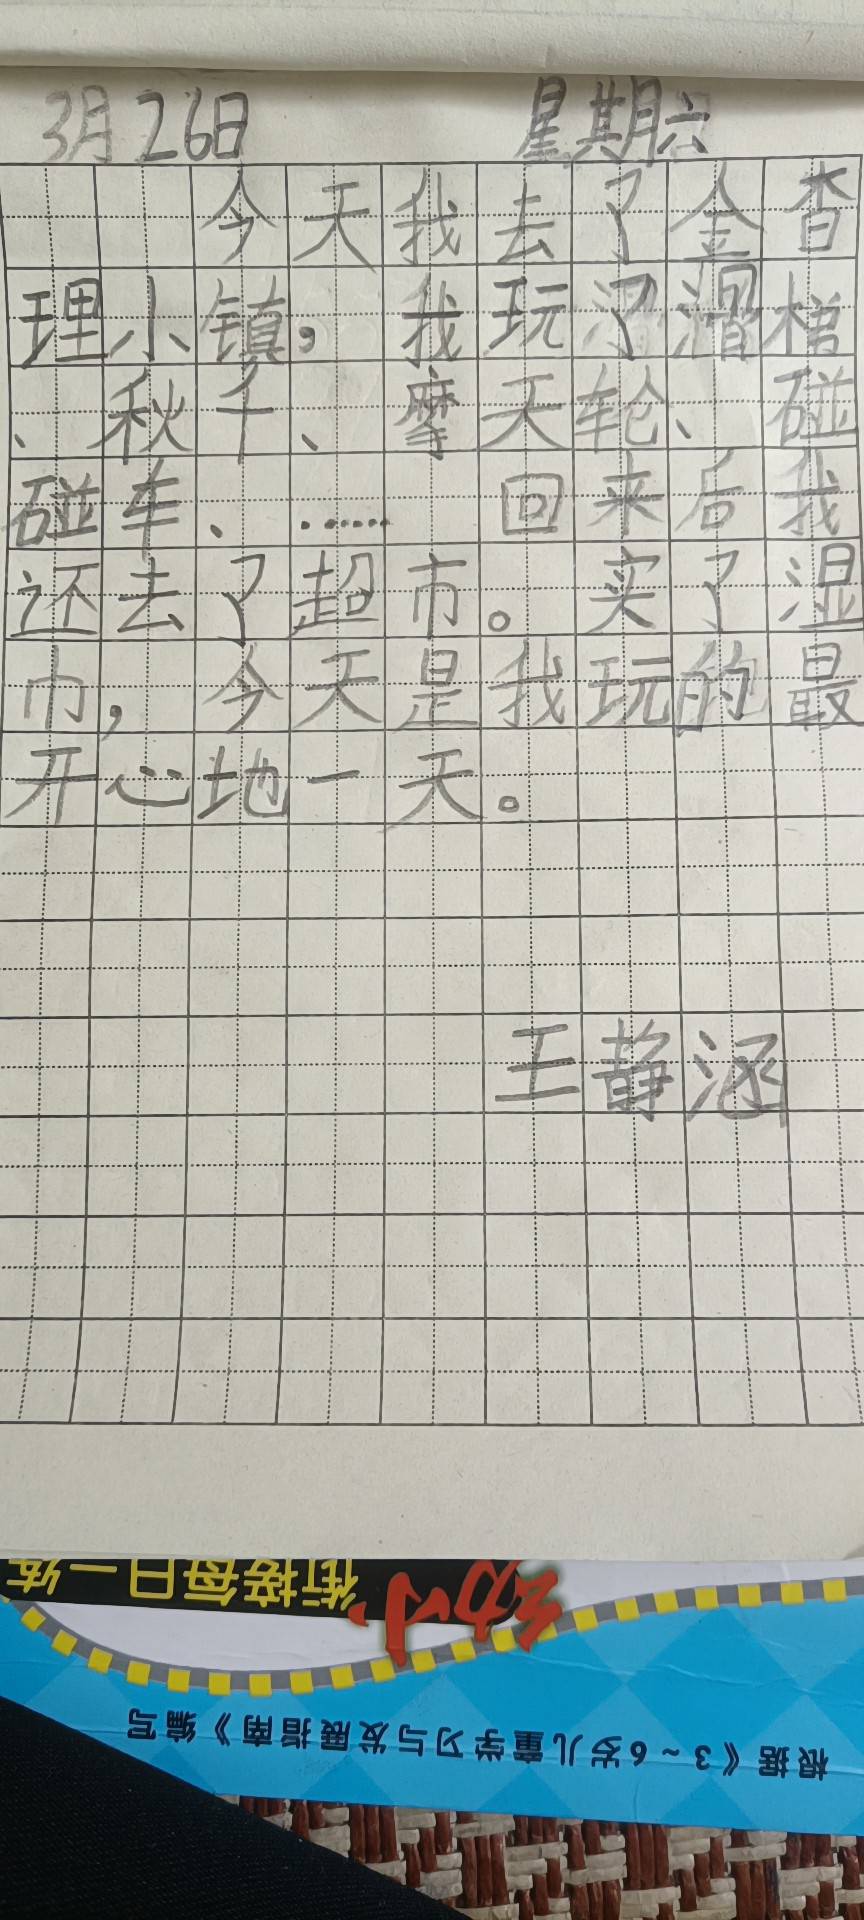 3月26日 星期六
今天我去了金香
理小镇，我玩了滑梯
、秋千、摩天轮、碰
碰车、…… 回来后我
还去了超市。买了湿
巾，今天是我玩的最
开心地一天。
王静涵
幼小衔接每日一练
根据《3~6岁儿童学习与发展指南》编写